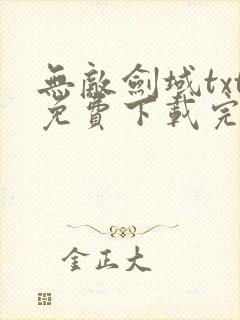 無敵劍域txt
免費下載完
金正大